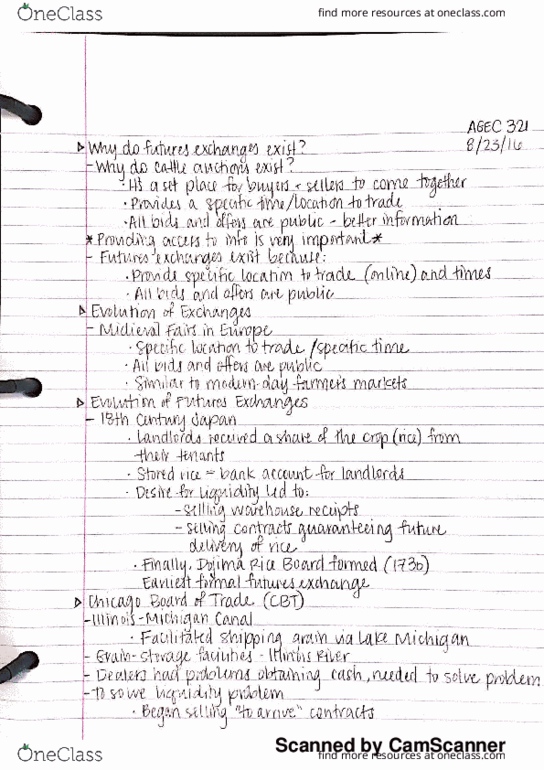 OneClass
find more resources at oneclass.com
AGEC 321
8/23/16
Why do futures exchanges exist?
- Why do cattle auctions exist?
· It's a set place for buyers + sellers to come together
· Provides a specific time/location to trade
· All bids and offers are public - better information
* Providing access to info is very important *
- Futures exchanges exist because:
· Provide specific location to trade (online) and times
· All bids and offers are public
Evolution of Exchanges
- Midieval Fairs in Europe
· Specific location to trade / specific time
· All bids and offers are public
· Similar to modern-day farmer's markets
Evolution of Futures Exchanges
- 18th Century Japan
· Landlords received a share of the crop (rice) from
their tenants
· Stored rice = bank account for landlords
· Desire for liquidity led to:
- Selling warehouse receipts
- Selling contracts guaranteeing future
delivery of rice
· Finally, Dojima Rice Board formed (1730)
Earliest formal futures exchange
Chicago Board of Trade (CBT)
- Illinois-Michigan Canal
· Facilitated shipping grain via Lake Michigan
- Grain-storage facilities - Illinois River
- Dealers had problems obtaining cash, needed to solve problem
- To solve liquidity problem
· Began selling "to arrive" contracts
Scanned by CamScanner
OneClass
find more resources at oneclass.com